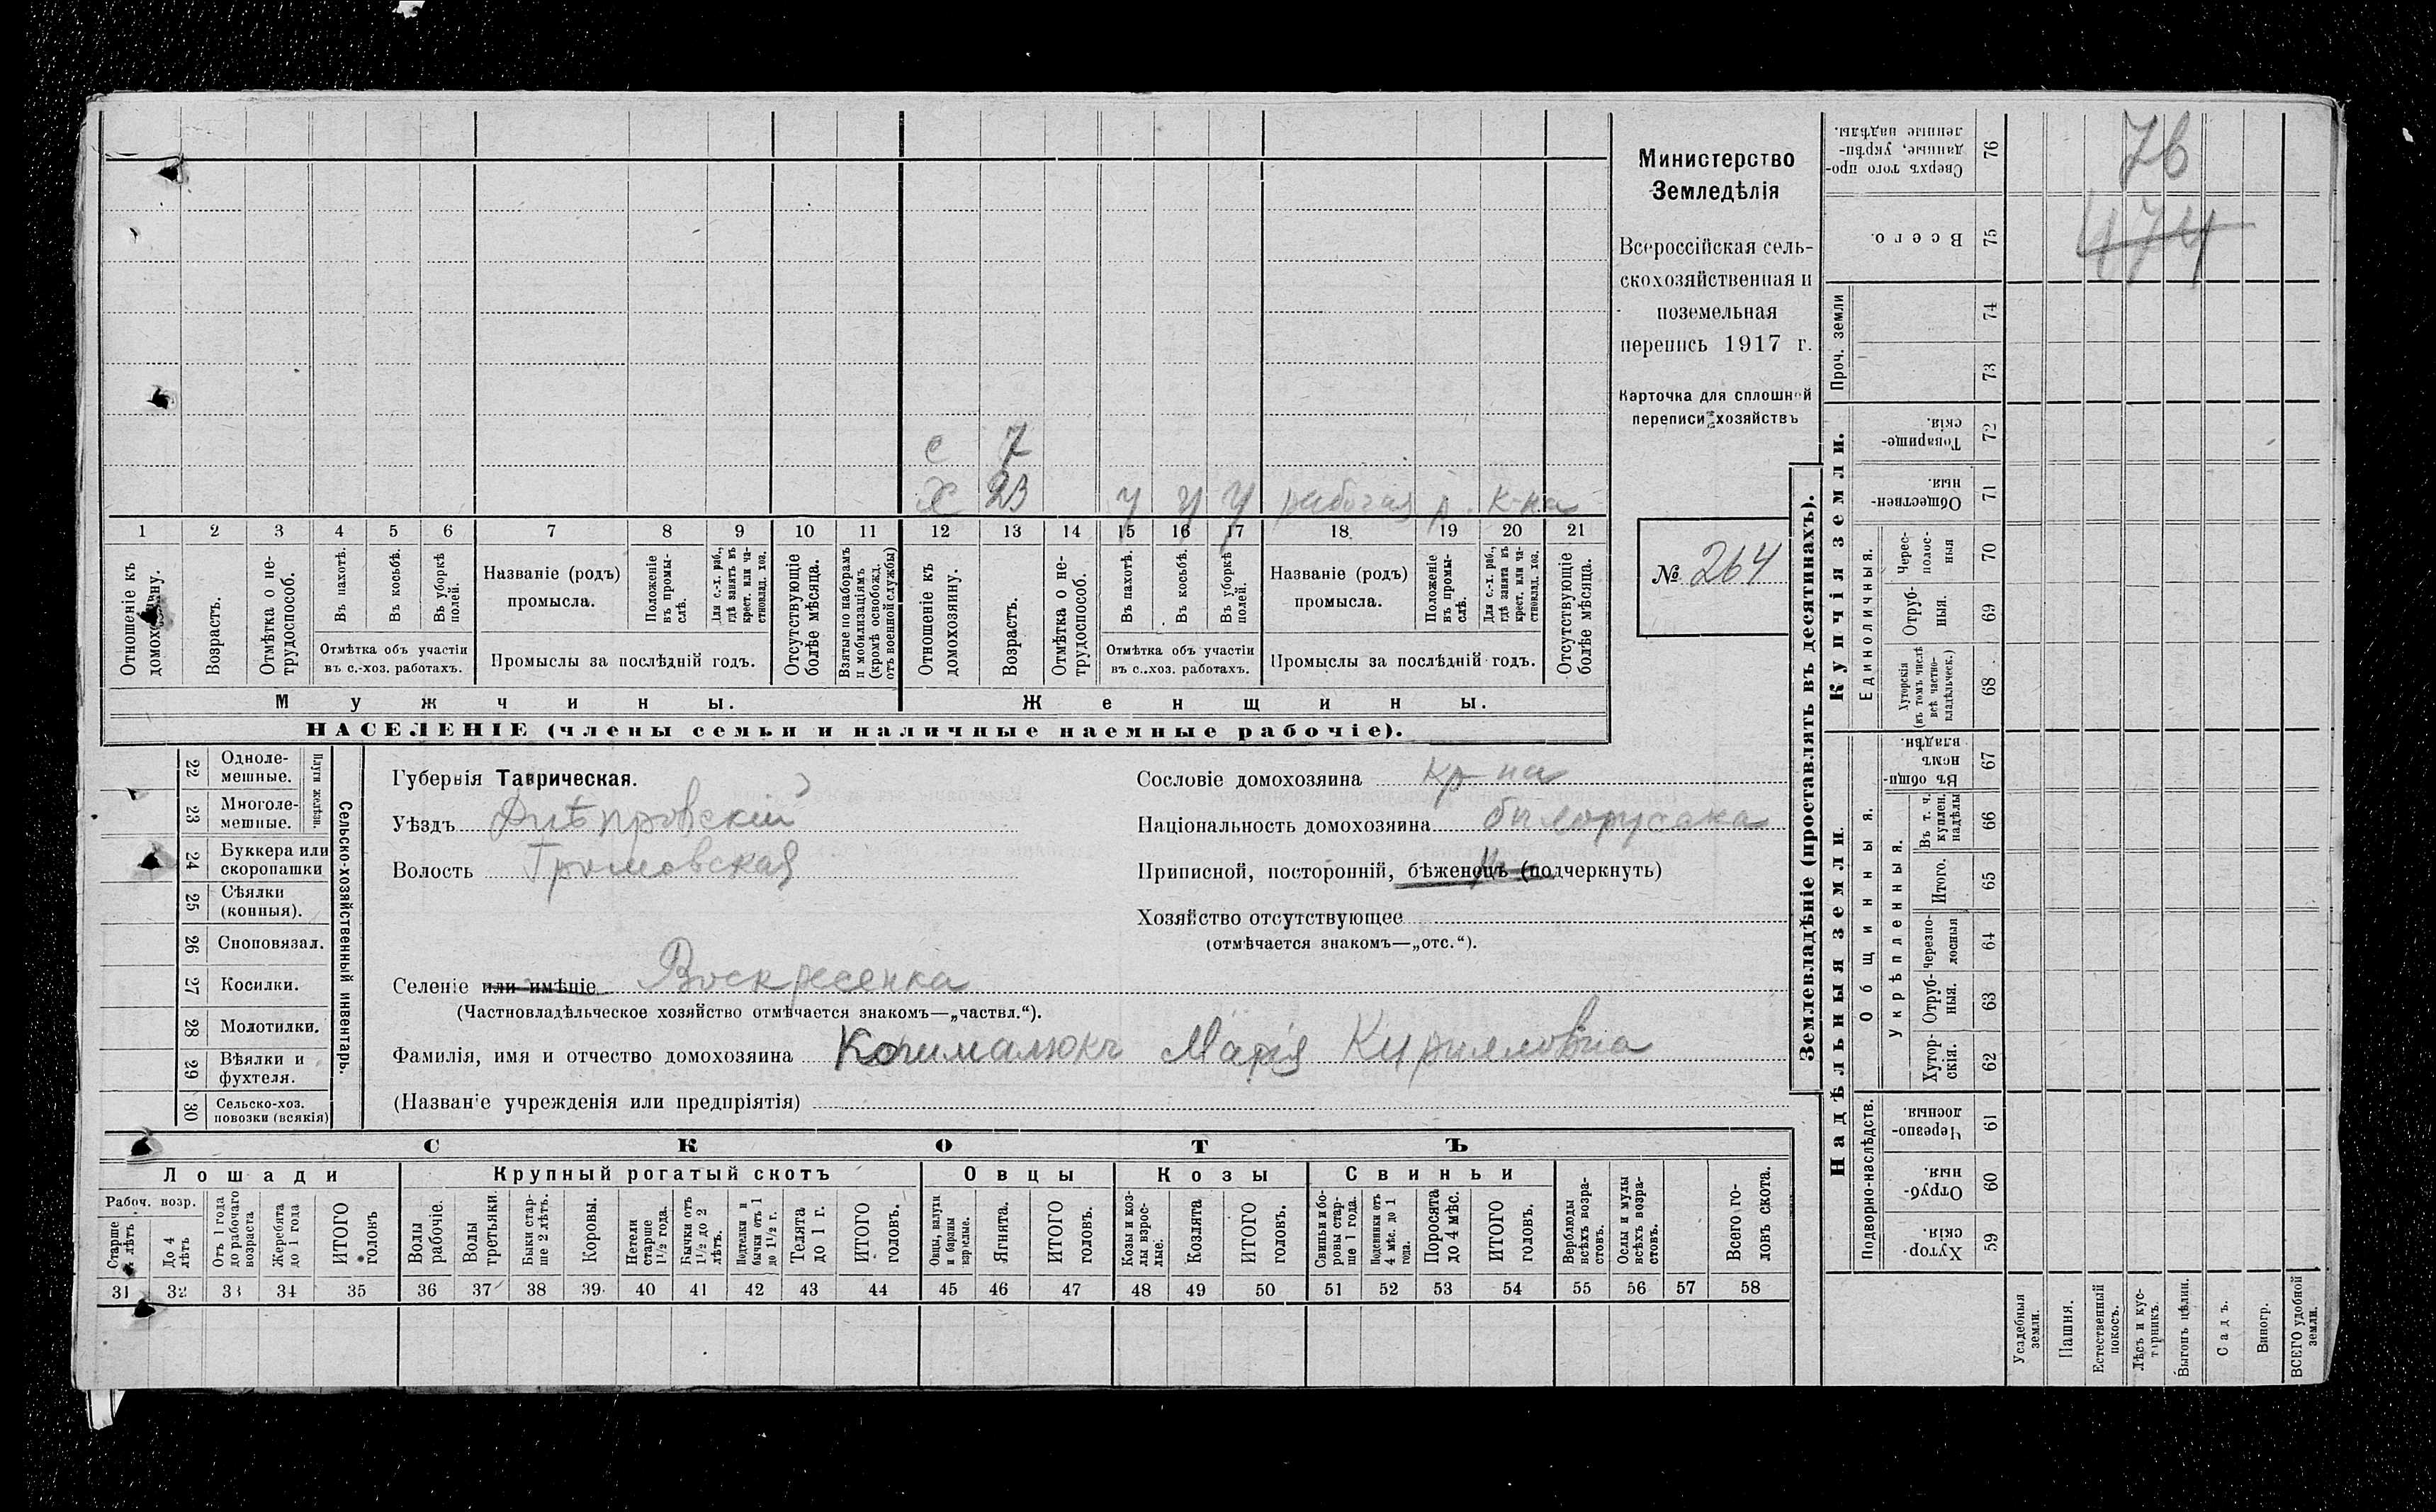 Министерство
Земледѣлія
Всероссійская сель-
скохозяйственная и
поземельная
перепись 1917 г.
Карточка для сплошной
переписи хозяйствъ
№ 264
с 7
х 23 у у у рабочая р. к-на
1 2 3 4 5 6 7 8 9 10 11 12 13 14 15 16 17 18 19 20 21
Отношеніе къ домохозяину.
Возрастъ.
Отмѣтка о не-трудоспособ.
Въ пахотѣ.
Въ косьбѣ.
Въ уборкѣ полей.
Отмѣтка объ участіи
въ с.-хоз. работахъ.
Названіе (родъ)
промысла.
Положеніе въ промы-слѣ.
Для с.-х. раб., гдѣ занятъ въ крест. или ча-стновлад. хоз.
Промыслы за послѣдній годъ.
Отсутствующіе болѣе мѣсяца.
Взятые по наборамъ и мобилизаціямъ (кромѣ освобожд. отъ военной службы)
Отношеніе къ домохозяину.
Возрастъ.
Отмѣтка о не-трудоспособ.
Въ пахотѣ.
Въ косьбѣ.
Въ уборкѣ полей.
Отмѣтка объ участіи
въ с.-хоз. работахъ.
Названіе (родъ)
промысла.
Положеніе въ промы-слѣ.
Для с.-х. раб., гдѣ занята въ крест. или ча-стновлад. хоз.
Промыслы за послѣдній годъ.
Отсутствующіе болѣе мѣсяца.
Мужчины. Женщины.
НАСЕЛЕНІЕ (члены семьи и наличные наемные рабочіе).
22 Одноле-мешные.
23 Многоле-мешные.
Плуги желѣзн.
24 Буккера или скоропашки
25 Сѣялки (конныя).
26 Сноповязал.
27 Косилки.
28 Молотилки.
29 Вѣялки и фухтеля.
30 Сельско-хоз. повозки (всякія)
Сельско-хозяйственный инвентарь.
Губернія Таврическая.
Уѣздъ Днѣпровскій
Волость Громовская
Сословіе домохозяина кр-на
Національность домохозяина билоруска
Приписной, посторонній, бѣженецъ (подчеркнуть)
Хозяйство отсутствующее
(отмѣчается знакомъ—„отс.“).
Селеніе или имѣніе Воскресенка
(Частновладѣльческое хозяйство отмѣчается знакомъ—„частвл.“).
Фамилія, имя и отчество домохозяина Марія Кирилловна
(Названіе учрежденія или предпріятія)
СКОТЪ
Лошади Крупный рогатый скотъ Овцы Козы Свиньи
Рабоч. возр.
Старше 4 лѣтъ
До 4 лѣтъ
Отъ 1 года до рабочаго возраста
Жеребята до 1 года
ИТОГО головъ
Волы рабочіе.
Волы третьяки.
Быки стар-ше 2 лѣтъ.
Коровы.
Нетели старше 1½ года.
Бычки отъ 1½ до 2 лѣтъ.
Подтелки и бычки отъ 1 до 1½ г.
Телята до 1 г.
ИТОГО головъ.
Овцы, валухи и бараны взрослые.
Ягнята.
ИТОГО головъ.
Козы и коз-лы взрос-лые.
Козлята
ИТОГО головъ.
Свиньи и бо-ровы стар-ше 1 года.
Подсвинки отъ 4 мѣс. до 1 года.
Поросята до 4 мѣс.
ИТОГО головъ.
Верблюды всѣхъ возра-стовъ.
Ослы и мулы всѣхъ возра-стовъ.
Всего го-ловъ скота.
31 32 33 34 35 36 37 38 39 40 41 42 43 44 45 46 47 48 49 50 51 52 53 54 55 56 57 58
Землевладѣніе (проставлять въ десятинахъ).
Надѣльныя земли.
Купчія земли.
Проч. земли
Подворно-наслѣдств.
Общинныя.
Укрѣпленныя.
Единоличныя.
Сверхъ того про-данные, укрѣп-ленные надѣлы. 76
Всего. 75
74
73
Товарище-скія. 72
Обществен-ныя. 71
Черес-полос-ныя 70
Отруб-ныя. 69
Хуторскія (въ томъ числѣ всѣ частно-владѣльческ.) 68
Въ общи-номъ владѣн. 67
Въ т. ч. куплен. надѣлы 66
Итого. 65
Черезпо-лосныя 64
Отруб-ныя. 63
Хутор-скія. 62
Черезпо-лосныя. 61
Отруб-ныя. 60
Хутор-скія. 59
Усадебныя земли.
Пашня.
Естественный покосъ.
Лѣсъ и кус-тарникъ.
Выгонъ цѣлин.
Садъ.
Виногр.
ВСЕГО удобной земли.
76
474